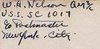 W. H. Nelson
U.S.S. SC 1017
℅ Postmaster
New York City